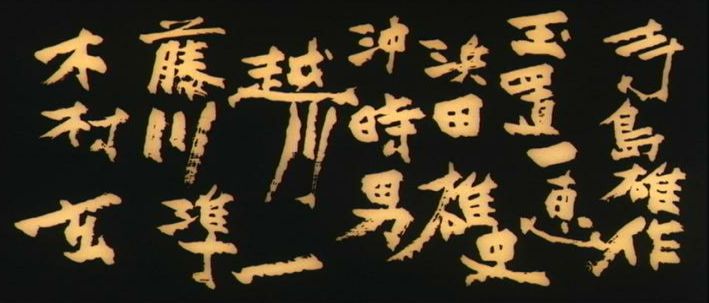 寺島雄作
玉置一恵
浜田雄史
沖時男
越川一
藤川準
木村玄